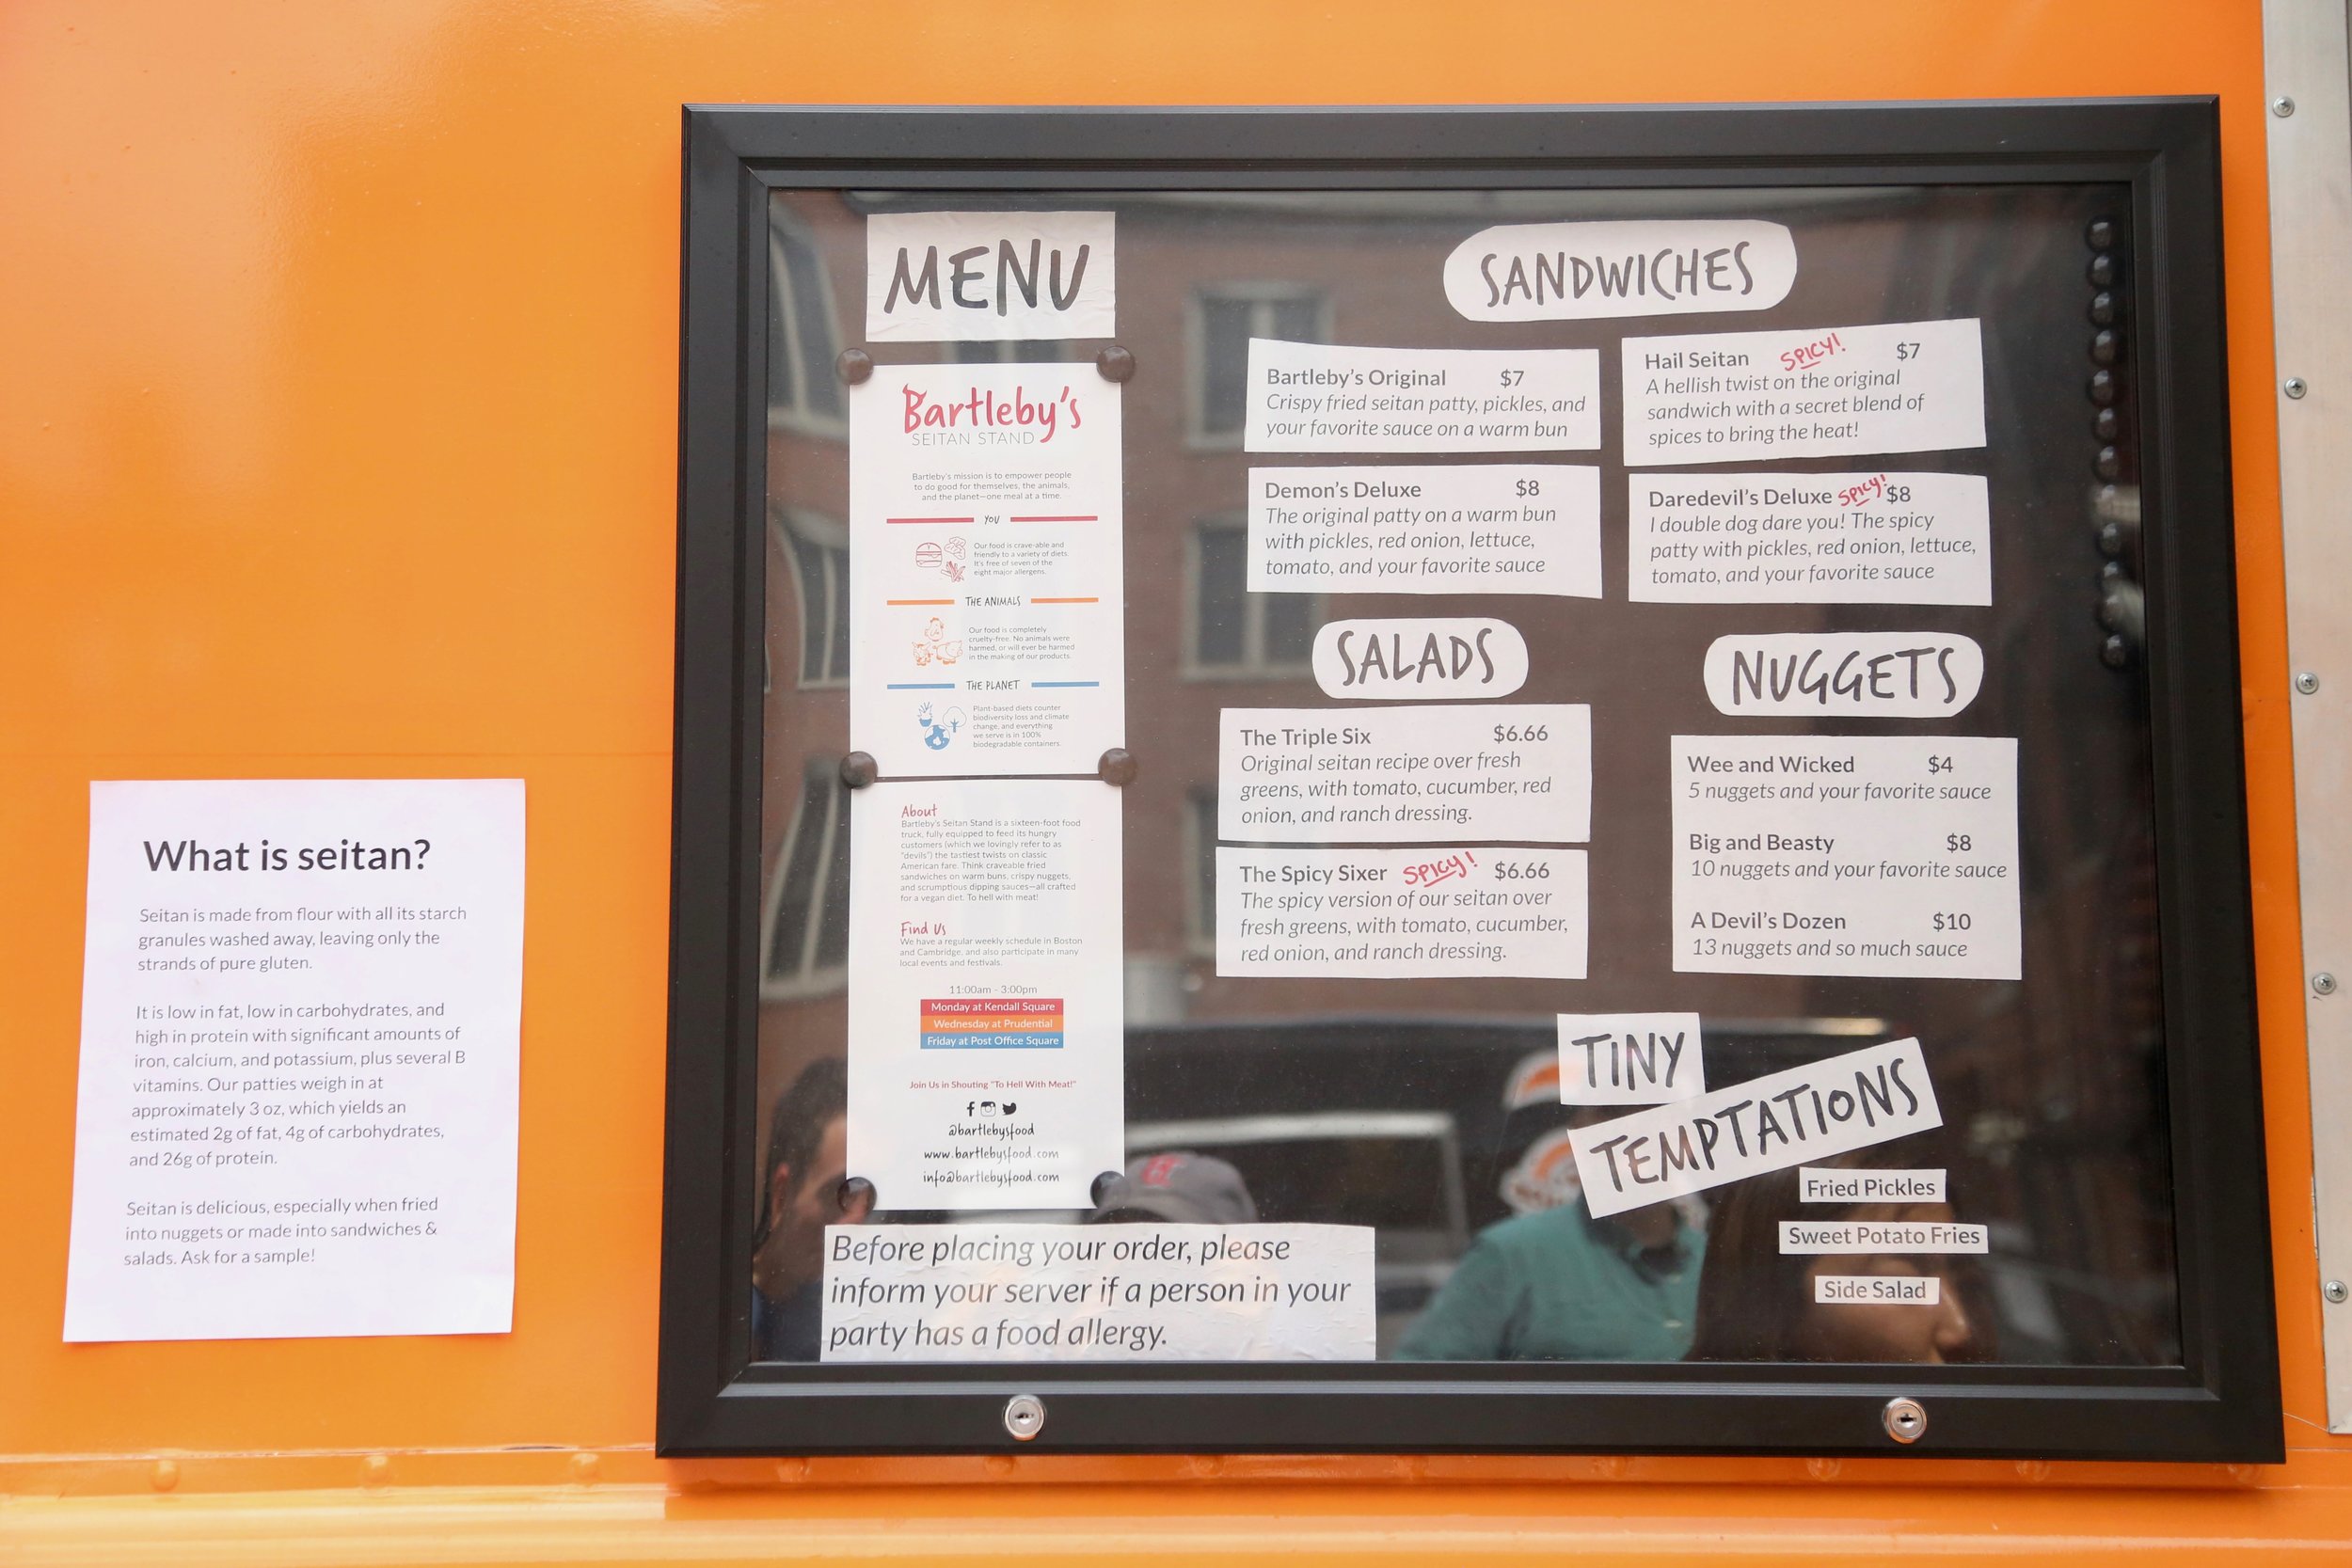 What is seitan?
Seitan is made from flour with all its starch
granules washed away, leaving only the
strands of pure gluten.
It is low in fat, low in carbohydrates, and
high in protein with significant amounts of
iron, calcium, and potassium, plus several B
vitamins. Our patties weigh in at
approximately 3 oz, which yields an
estimated 2g of fat, 4g of carbohydrates,
and 26g of protein.
Seitan is delicious, especially when fried
into nuggets or made into sandwiches &
salads. Ask for a sample!
MENU
Bartleby's
SEITAN STAND
Bartleby's mission is to empower people
to do good for themselves, the animals,
and the planet—one meal at a time.
YOU
Our food is crave-able and
friendly to a variety of diets.
It's free of seven of the
eight major allergens.
THE ANIMALS
Our food is completely
cruelty-free. No animals were
harmed, or will ever be harmed
in the making of our products.
THE PLANET
Plant-based diets counter
biodiversity loss and climate
change, and everything
we serve is in 100%
biodegradable containers.
About
Bartleby's Seitan Stand is a sixteen-foot food
truck, fully equipped to feed its hungry
customers (which we lovingly refer to as
"devils") the tastiest twists on classic
American fare. Think craveable fried
sandwiches on warm buns, crispy nuggets,
and scrumptious dipping sauces—all crafted
for a vegan diet. To hell with meat!
Find Us
We have a regular weekly schedule in Boston
and Cambridge, and also participate in many
local events and festivals.
11:00am - 3:00pm
Monday at Kendall Square
Wednesday at Prudential
Friday at Post Office Square
Join Us in Shouting "To Hell With Meat!"
@bartlebysfood
www.bartlebysfood.com
info@bartlebysfood.com
Before placing your order, please
inform your server if a person in your
party has a food allergy.
SANDWICHES
Bartleby's Original $7
Crispy fried seitan patty, pickles, and
your favorite sauce on a warm bun
Hail Seitan SPICY! $7
A hellish twist on the original
sandwich with a secret blend of
spices to bring the heat!
Demon's Deluxe $8
The original patty on a warm bun
with pickles, red onion, lettuce,
tomato, and your favorite sauce
Daredevil's Deluxe SPICY! $8
I double dog dare you! The spicy
patty with pickles, red onion, lettuce,
tomato, and your favorite sauce
SALADS
The Triple Six $6.66
Original seitan recipe over fresh
greens, with tomato, cucumber, red
onion, and ranch dressing.
The Spicy Sixer SPICY! $6.66
The spicy version of our seitan over
fresh greens, with tomato, cucumber,
red onion, and ranch dressing.
NUGGETS
Wee and Wicked $4
5 nuggets and your favorite sauce
Big and Beasty $8
10 nuggets and your favorite sauce
A Devil's Dozen $10
13 nuggets and so much sauce
TINY
TEMPTATIONS
Fried Pickles
Sweet Potato Fries
Side Salad